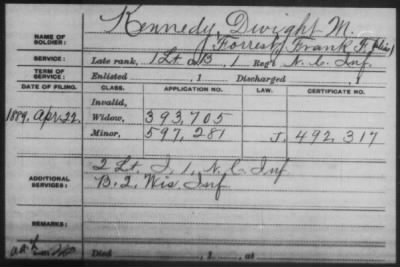 Kennedy, Dwight M.
NAME OF SOLDIER:
Forrest, Frank F. (alias)
SERVICE:
Late rank, 1 Lt. B, 1 Reg't N.C. Inf.
TERM OF SERVICE:
Enlisted , 1 Discharged , 1
DATE OF FILING. CLASS. APPLICATION NO. LAW. CERTIFICATE NO.
Invalid,
1889, Apr. 22. Widow, 393,705
Minor, 597,281 J. 492,317
ADDITIONAL SERVICES:
2 Lt. I, 1, N.C. Inf
B. 2, Wis Inf
REMARKS:
Died , 1 , at